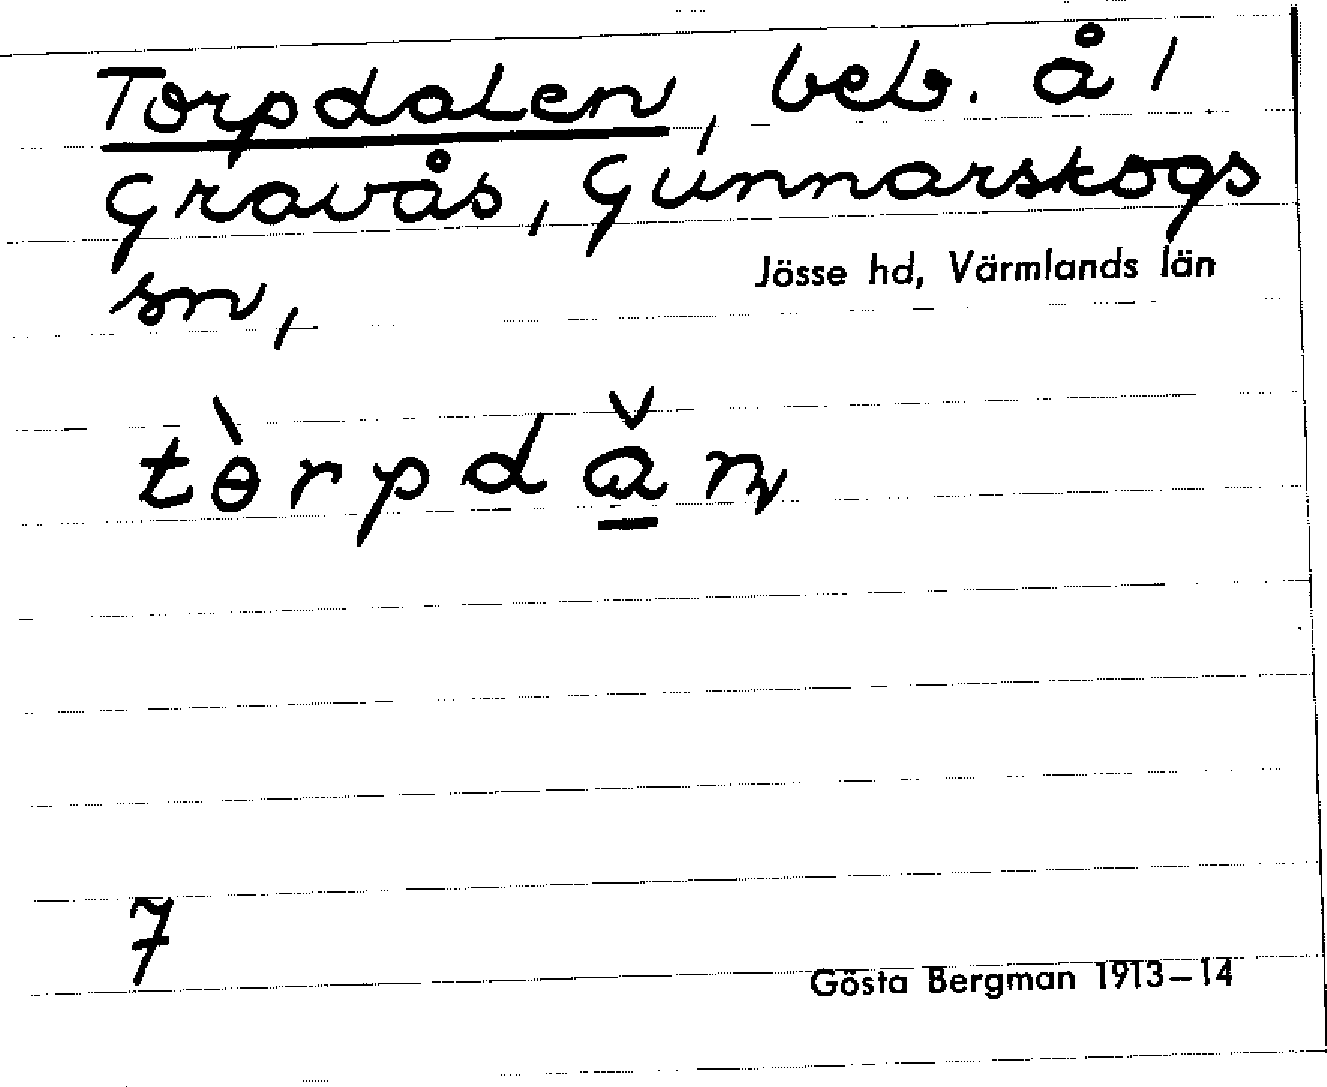 Torpdalen, beb. å 1
Gravås, Gunnarskogs
sn,
Jösse hd, Värmlands län
tɵ̀rpdǎ̱n
7
Gösta Bergman 1913–14